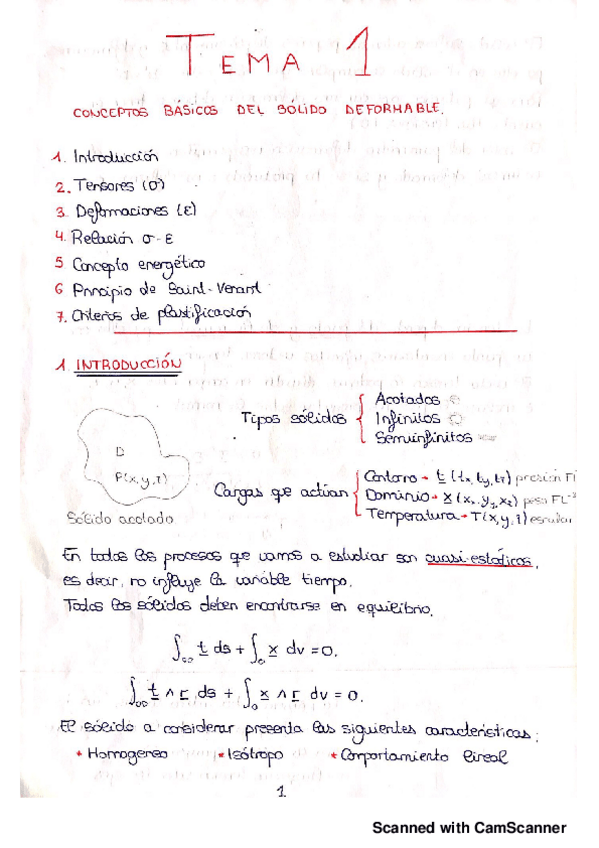 TEMA 1
CONCEPTOS BÁSICOS DEL SÓLIDO DEFORMABLE.
1. Introducción
2. Tensores (σ)
3. Deformaciones (ε)
4. Relación σ - ε
5 Concepto energético
6 Principio de Saint-Venant
7. Criterios de plastificación
1. INTRODUCCIÓN
D
P(x,y,z)
Sólido acotado
Tipos sólidos
Acotados
Infinitos
Semiinfinitos
Cargas que actúan
Contorno → t (tx, ty, tz) presión
Dominio → x (xx, yy, xz) peso FL⁻³
Temperatura → T(x,y,z) escalar
En todos los procesos que vamos a estudiar son quasi-estáticos,
es decir, no influye la variable tiempo.
Todos los sólidos deben encontrarse en equilibrio.
∫∂D t ds + ∫D x dv = 0.
∫∂D t ∧ r ds + ∫D x ∧ r dv = 0.
El sólido a considerar presenta las siguientes características:
* Homogeneo * Isótropo * Comportamiento lineal
1
Scanned with CamScanner